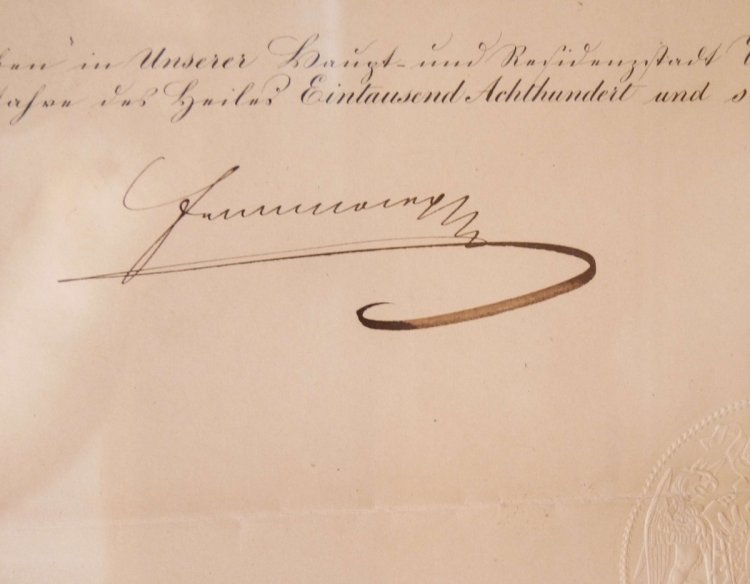 ben in Unserer Haupt- und Residenzstadt
Jahre des Heiles Eintausend Achthundert und s